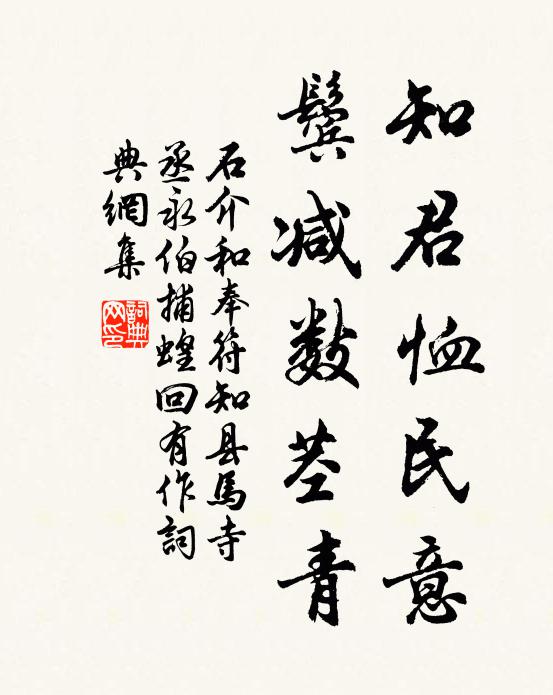 知君恤民意
鬓减数茎青
石介和奉符知县馬寺
丞永伯捕蝗回有作詞
典網集
詞典
网印